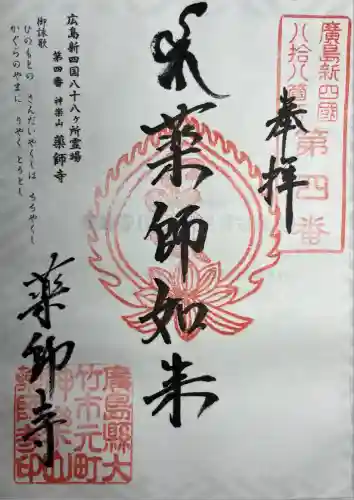 廣島新四國
八拾八箇所
第四番
奉拝
薬師如来
広島新四国八十八ヶ所霊場
第四番 神楽山 薬師寺
御詠歌
ひのもとの さんだいやくしは ちろやくし
かぐらのやまに りやく とうとし
薬師寺
廣島縣大
竹市元町
神楽山
薬師寺印